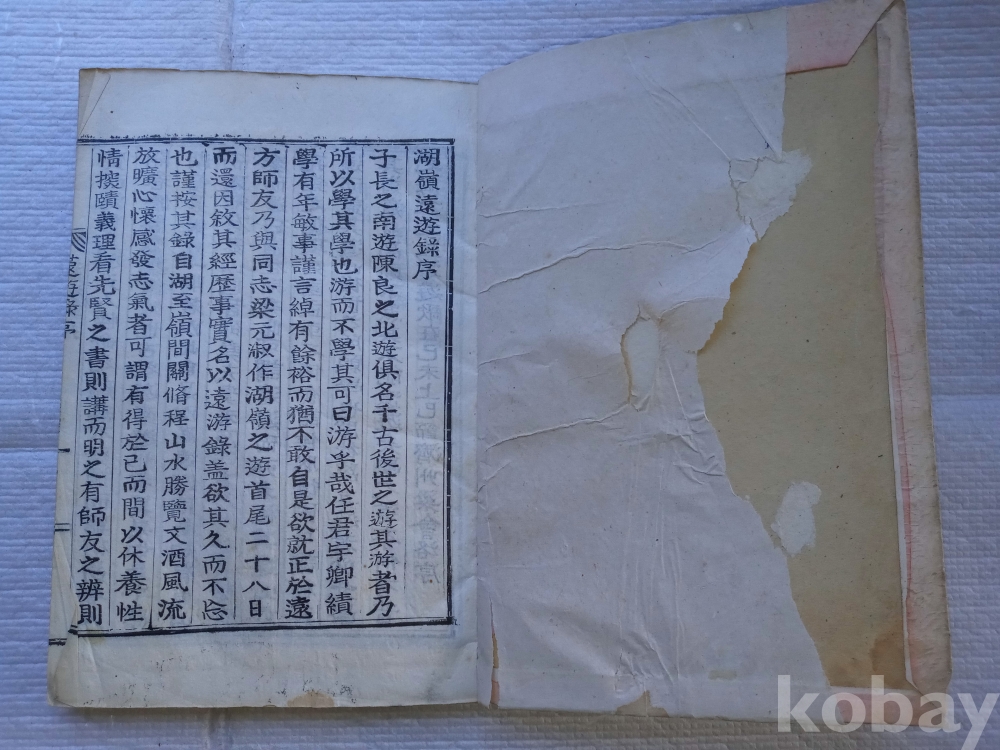 湖嶺遠遊錄序
子長之南遊陳良之北遊俱名千古後世之遊其游者乃
所以學其學也游而不學其可曰游乎哉任君宇卿績
學有年敏事謹言綽有餘裕而猶不敢自是欲就正於遠
方師友乃與同志梁元淑作湖嶺之遊首尾二十八日
而還因敘其經歷事實名以遠游錄盖欲其久而不忘
也謹按其錄自湖至嶺間關脩程山水勝覽文酒風流
放曠心懷感發志氣者可謂有得於己而間以休養性
情探賾義理看先賢之書則講而明之有師友之辨則
遠遊錄序
kobay